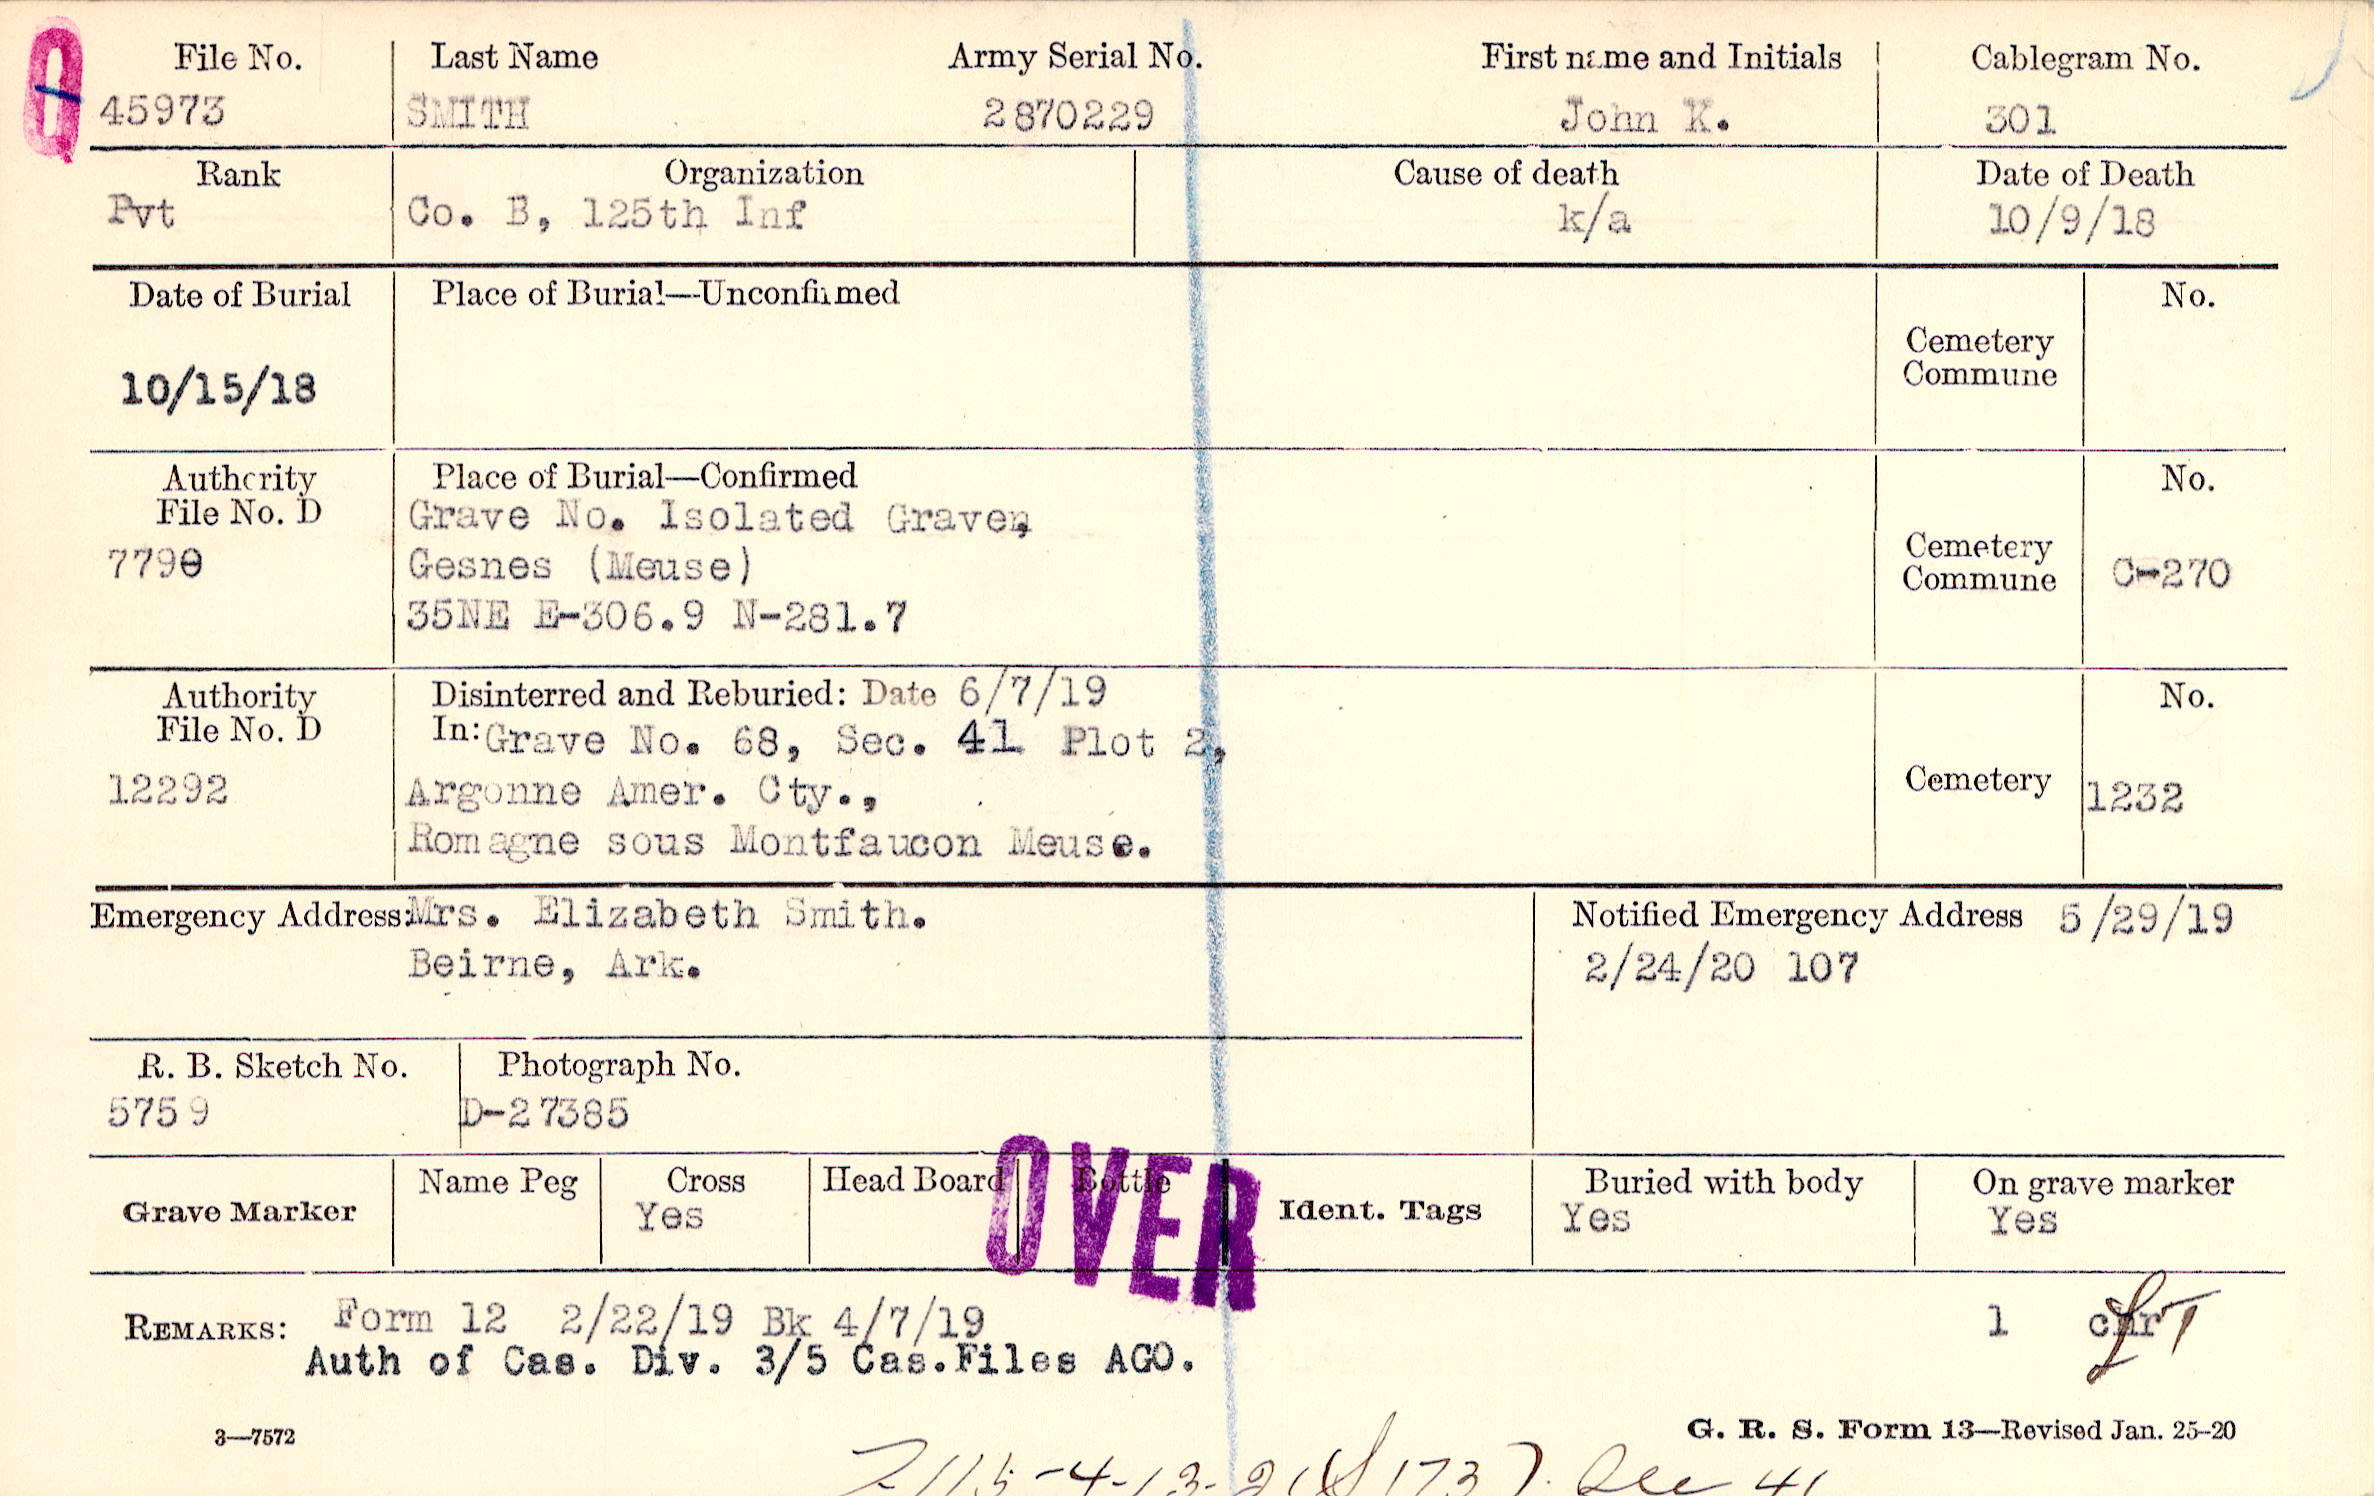 0
File No. Last Name Army Serial No. First name and Initials Cablegram No.
45973 SMITH 2870229 John K. 301
Rank Organization Cause of death Date of Death
Pvt Co. B, 125th Inf k/a 10/9/18
Date of Burial Place of Burial—Unconfirmed No.
Cemetery
Commune
10/15/18
Authority Place of Burial—Confirmed No.
File No. D Grave No. Isolated Grave,
7790 Gesnes (Meuse) Cemetery
Commune C-270
35NE E-306.9 N-281.7
Authority Disinterred and Reburied: Date 6/7/19 No.
File No. D In: Grave No. 68, Sec. 41 Plot 2,
12292 Argonne Amer. Cty., Cemetery 1232
Romagne sous Montfaucon Meuse.
Emergency Address: Mrs. Elizabeth Smith. Notified Emergency Address 5/29/19
Beirne, Ark. 2/24/20 107
R. B. Sketch No. Photograph No.
5759 D-27385
OVER
Grave Marker Name Peg Cross Head Board Bottle Ident. Tags Buried with body On grave marker
Yes Yes Yes
REMARKS: Form 12 2/22/19 Bk 4/7/19 1 chr
Auth of Cas. Div. 3/5 Cas.Files AGO.
3—7572 G. R. S. Form 13—Revised Jan. 25-20